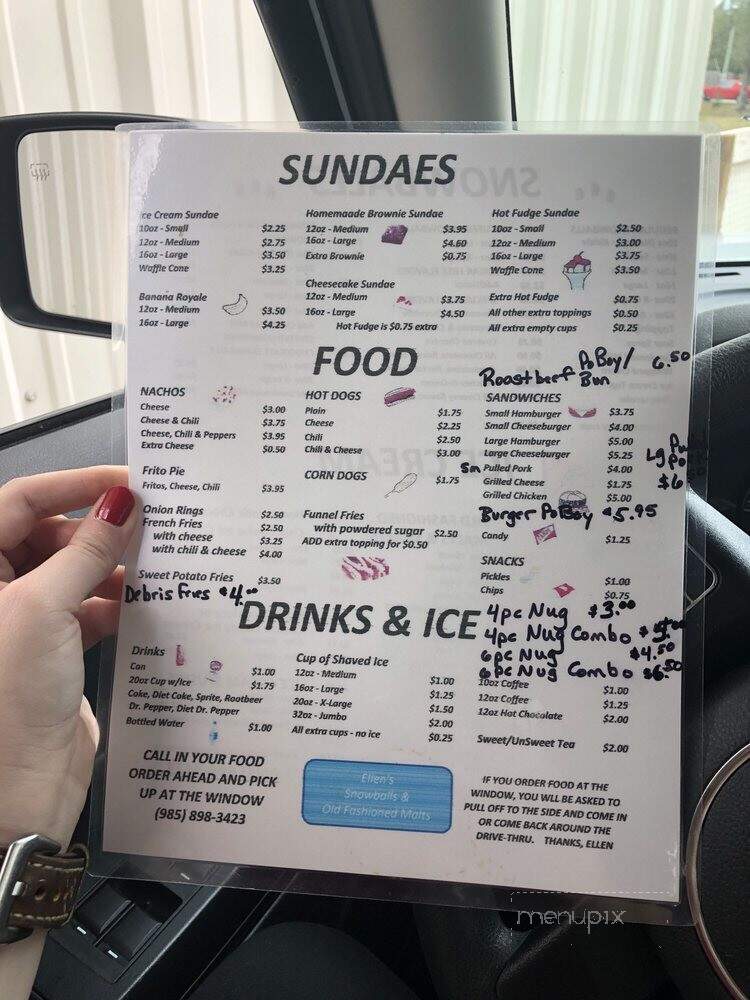 SUNDAES
ce Cream Sundae
10oz - Small $2.25
12oz - Medium $2.75
16oz - Large $3.50
Waffle Cone $3.25
Banana Royale
12oz - Medium $3.50
16oz - Large $4.25
Homemaade Brownie Sundae
12oz - Medium $3.95
16oz - Large $4.60
Extra Brownie $0.75
Cheesecake Sundae
12oz - Medium $3.75
16oz - Large $4.50
Hot Fudge is $0.75 extra
Hot Fudge Sundae
10oz - Small $2.50
12oz - Medium $3.00
16oz - Large $3.75
Waffle Cone $3.50
Extra Hot Fudge $0.75
All other extra toppings $0.50
All extra empty cups $0.25
FOOD
NACHOS
Cheese $3.00
Cheese & Chili $3.75
Cheese, Chili & Peppers $3.95
Extra Cheese $0.50
Frito Pie
Fritos, Cheese, Chili $3.95
Onion Rings $2.50
French Fries $2.50
with cheese $3.25
with chili & cheese $4.00
Sweet Potato Fries $3.50
Debris Fries $4.00
HOT DOGS
Plain $1.75
Cheese $2.25
Chili $2.50
Chili & Cheese $3.00
CORN DOGS $1.75
Funnel Fries
with powdered sugar $2.50
ADD extra topping for $0.50
Roastbeef PoBoy/ Bun 6.50
SANDWICHES
Small Hamburger $3.75
Small Cheeseburger $4.00
Large Hamburger $5.00
Large Cheeseburger $5.25
Sm Pulled Pork $4.00
Lg $6
Grilled Cheese $1.75
Grilled Chicken $5.00
Burger PoBoy $5.95
Candy $1.25
SNACKS
Pickles $1.00
Chips $0.75
4pc Nug $3.00
4pc Nug Combo
6pc Nug $4.50
6pc Nug Combo $6.50
DRINKS & ICE
Drinks
Can $1.00
20oz Cup w/Ice $1.75
Coke, Diet Coke, Sprite, Rootbeer
Dr. Pepper, Diet Dr. Pepper
Bottled Water $1.00
Cup of Shaved Ice
12oz - Medium $1.00
16oz - Large $1.25
20oz - X-Large $1.50
32oz - Jumbo $2.00
All extra cups - no ice $0.25
10oz Coffee $1.00
12oz Coffee $1.25
12oz Hot Chocolate $2.00
Sweet/UnSweet Tea $2.00
CALL IN YOUR FOOD
ORDER AHEAD AND PICK
UP AT THE WINDOW
(985) 898-3423
Ellen's
Snowballs &
Old Fashioned Malts
IF YOU ORDER FOOD AT THE
WINDOW, YOU WLL BE ASKED TO
PULL OFF TO THE SIDE AND COME IN
OR COME BACK AROUND THE
DRIVE-THRU. THANKS, ELLEN
menupix